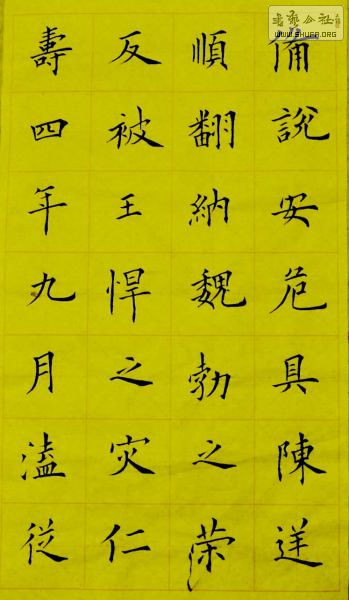 備說安危具陳逆
順翻納魏勃之荣
反被王悍之灾仁
壽四年九月溘從
書藝公社
WWW.SHUFA.ORG